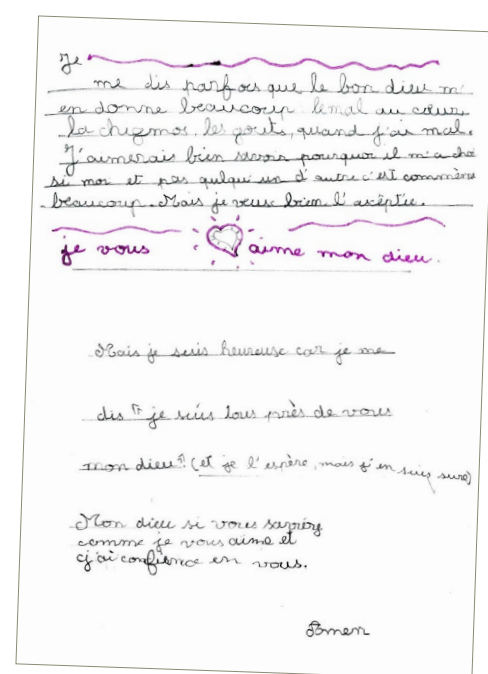 Je
me dis parfois que le bon dieu m'
en donne beaucoup le mal au cœur
la chizmos, les gouts, quand j'ai mal.
J'aimerais bien savoir pourquoi il m'a choi
si moi et pas quelqu'un d'autre c'est commême
beaucoup. Mais je veux bien l'acèptée.
je vous aime mon dieu.
Mais je suis heureuse car je me
dis "je suis tous près de vous
mon dieu" (et je l'espère, mais j'en suis sure)
Mon dieu si vous saviez
comme je vous aime et
cj'ai confience en vous.
Amen